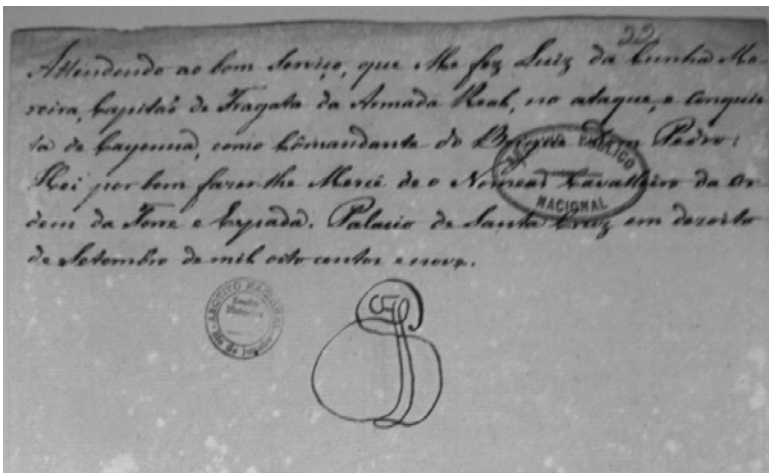 22
Attendendo ao bom Serviço, que Me fez Luiz da Cunha Mo-
reira, Capitaõ de Fragata da Armada Real, no ataque, e Conquis-
ta de Cayenna, como Cõmandante do Brigue Dom Pedro:
Hei por bom fazer lhe Mercê de o Nomear Cavalleiro da Or-
dem da Torre e Espada. Palacio de Santa Cruz em dezoito
de Setembro de mil oito centos e nove.
ARCHIVO PUBLICO
NACIONAL
ARCHIVO NACIONAL
Secão
Historica
Rio de Janeiro